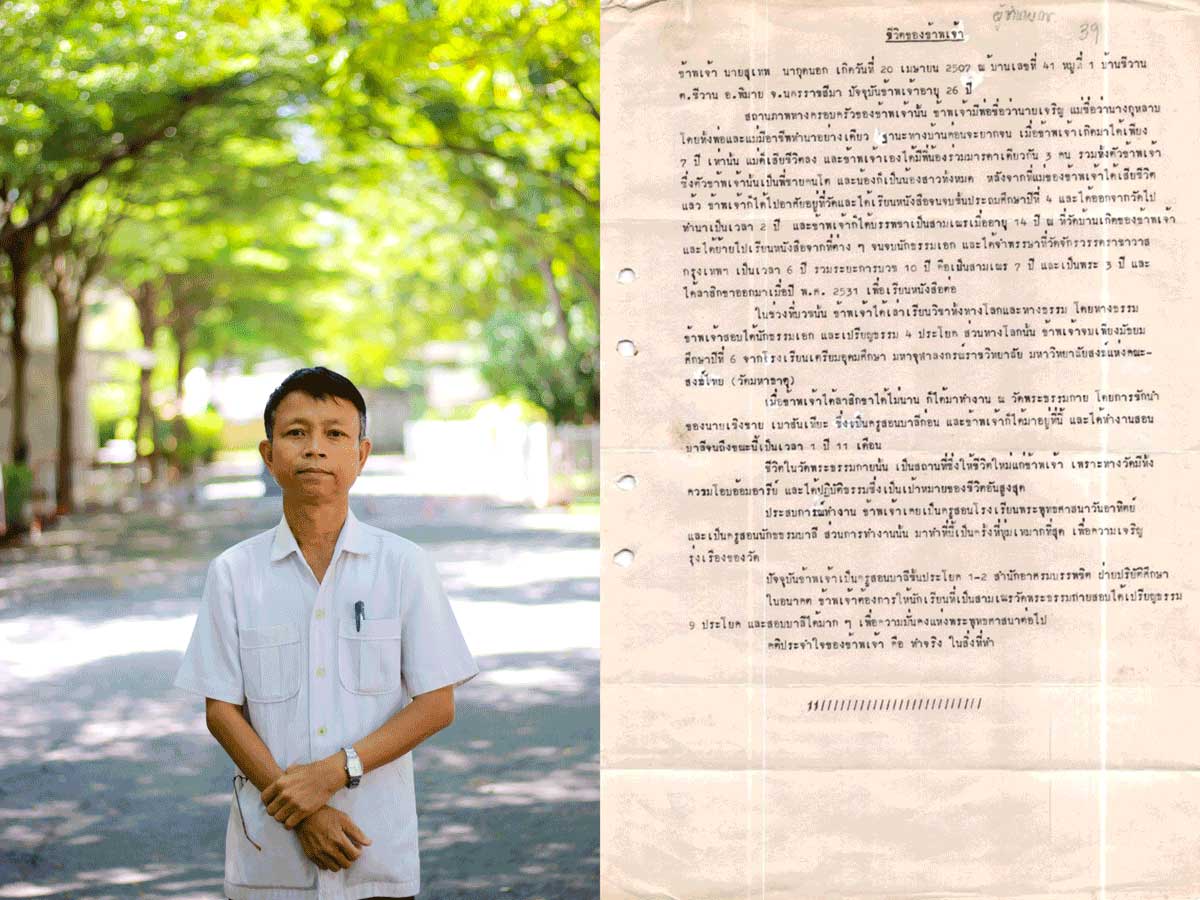 39
ชีวิตของข้าพเจ้า
ข้าพเจ้า นายสุเทพ นากุดนอก เกิดวันที่ 20 เมษายน 2507 ณ บ้านเลขที่ 41 หมู่ที่ 1 บ้านชีวาน
ต.ชีวาน อ.พิมาย จ.นครราชสีมา ปัจจุบันข้าพเจ้าอายุ 26 ปี
สถานภาพทางครอบครัวของข้าพเจ้านั้น ข้าพเจ้ามีพ่อชื่อว่านายเจริญ แม่ชื่อว่านางกุหลาบ
โดยทั้งพ่อและแม่มีอาชีพทำนาอย่างเดียว ฐานะทางบ้านค่อนจะยากจน เมื่อข้าพเจ้าเกิดมาได้เพียง
7 ปี เท่านั้น แม่ก็เสียชีวิตลง และข้าพเจ้าเองได้มีพี่น้องร่วมมารดาเดียวกัน 3 คน รวมทั้งตัวข้าพเจ้า
ซึ่งตัวข้าพเจ้านั้นเป็นพี่ชายคนโต และน้องก็เป็นน้องสาวทั้งหมด หลังจากที่แม่ของข้าพเจ้าได้เสียชีวิต
แล้ว ข้าพเจ้าก็ได้ไปอาศัยอยู่ที่วัดและได้เรียนหนังสือจนจบชั้นประถมศึกษาปีที่ 4 และได้ออกจากวัดไป
ทำนาเป็นเวลา 2 ปี และข้าพเจ้าก็ได้บรรพชาเป็นสามเณรเมื่ออายุ 14 ปี ณ ที่วัดบ้านเกิดของข้าพเจ้า
และได้ย้ายไปเรียนหนังสือจากที่ต่าง ๆ จนจบนักธรรมเอก และได้จำพรรษาที่วัดจักรวรรดราชาวาส
กรุงเทพฯ เป็นเวลา 6 ปี รวมระยะการบวช 10 ปี คือเป็นสามเณร 7 ปี และเป็นพระ 3 ปี และ
ได้ลาสิกขาออกมาเมื่อปี พ.ศ. 2531 เพื่อเรียนหนังสือต่อ
ในช่วงที่บวชนั้น ข้าพเจ้าได้เล่าเรียนวิชาทั้งทางโลกและทางธรรม โดยทางธรรม
ข้าพเจ้าสอบได้นักธรรมเอก และเปรียญธรรม 4 ประโยค ส่วนทางโลกนั้น ข้าพเจ้าจบเพียงมัธยม
ศึกษาปีที่ 6 จากโรงเรียนเตรียมอุดมศึกษา มหาจุฬาลงกรณ์ราชวิทยาลัย มหาวิทยาลัยสงฆ์แห่งคณะ-
สงฆ์ไทย (วัดมหาธาตุ)
เมื่อข้าพเจ้าได้ลาสิกขาได้ไม่นาน ก็ได้มาทำงาน ณ วัดพระธรรมกาย โดยการชักนำ
ของนายเชิงชาย เบาสันเทียะ ซึ่งเป็นครูสอนบาลีก่อน และข้าพเจ้าก็ได้มาอยู่ที่นี้ และได้ทำงานสอน
บาลีจนถึงขณะนี้เป็นเวลา 1 ปี 11 เดือน
ชีวิตในวัดพระธรรมกายนั้น เป็นสถานที่ซึ่งให้ชีวิตใหม่แก่ข้าพเจ้า เพราะทางวัดมีทั้ง
ความโอบอ้อมอารีย์ และได้ปฏิบัติธรรมซึ่งเป็นเป้าหมายของชีวิตอันสูงสุด
ประสบการณ์ทำงาน ข้าพเจ้าเคยเป็นครูสอนโรงเรียนพระพุทธศาสนาวันอาทิตย์
และเป็นครูสอนนักธรรมบาลี ส่วนการทำงานนั้น มาทำที่นี้เป็นครั้งที่ทุ่มเทมากที่สุด เพื่อความเจริญ
รุ่งเรืองของวัด
ปัจจุบันข้าพเจ้าเป็นครูสอนบาลีชั้นประโยค 1-2 สำนักอาศรมบรรพชิต ฝ่ายปริยัติศึกษา
ในอนาคต ข้าพเจ้าต้องการให้นักเรียนที่เป็นสามเณรวัดพระธรรมกายสอบได้เปรียญธรรม
9 ประโยค และสอบบาลีได้มาก ๆ เพื่อความมั่นคงแห่งพระพุทธศาสนาต่อไป
คติประจำใจของข้าพเจ้า คือ ทำจริง ในสิ่งที่ทำ